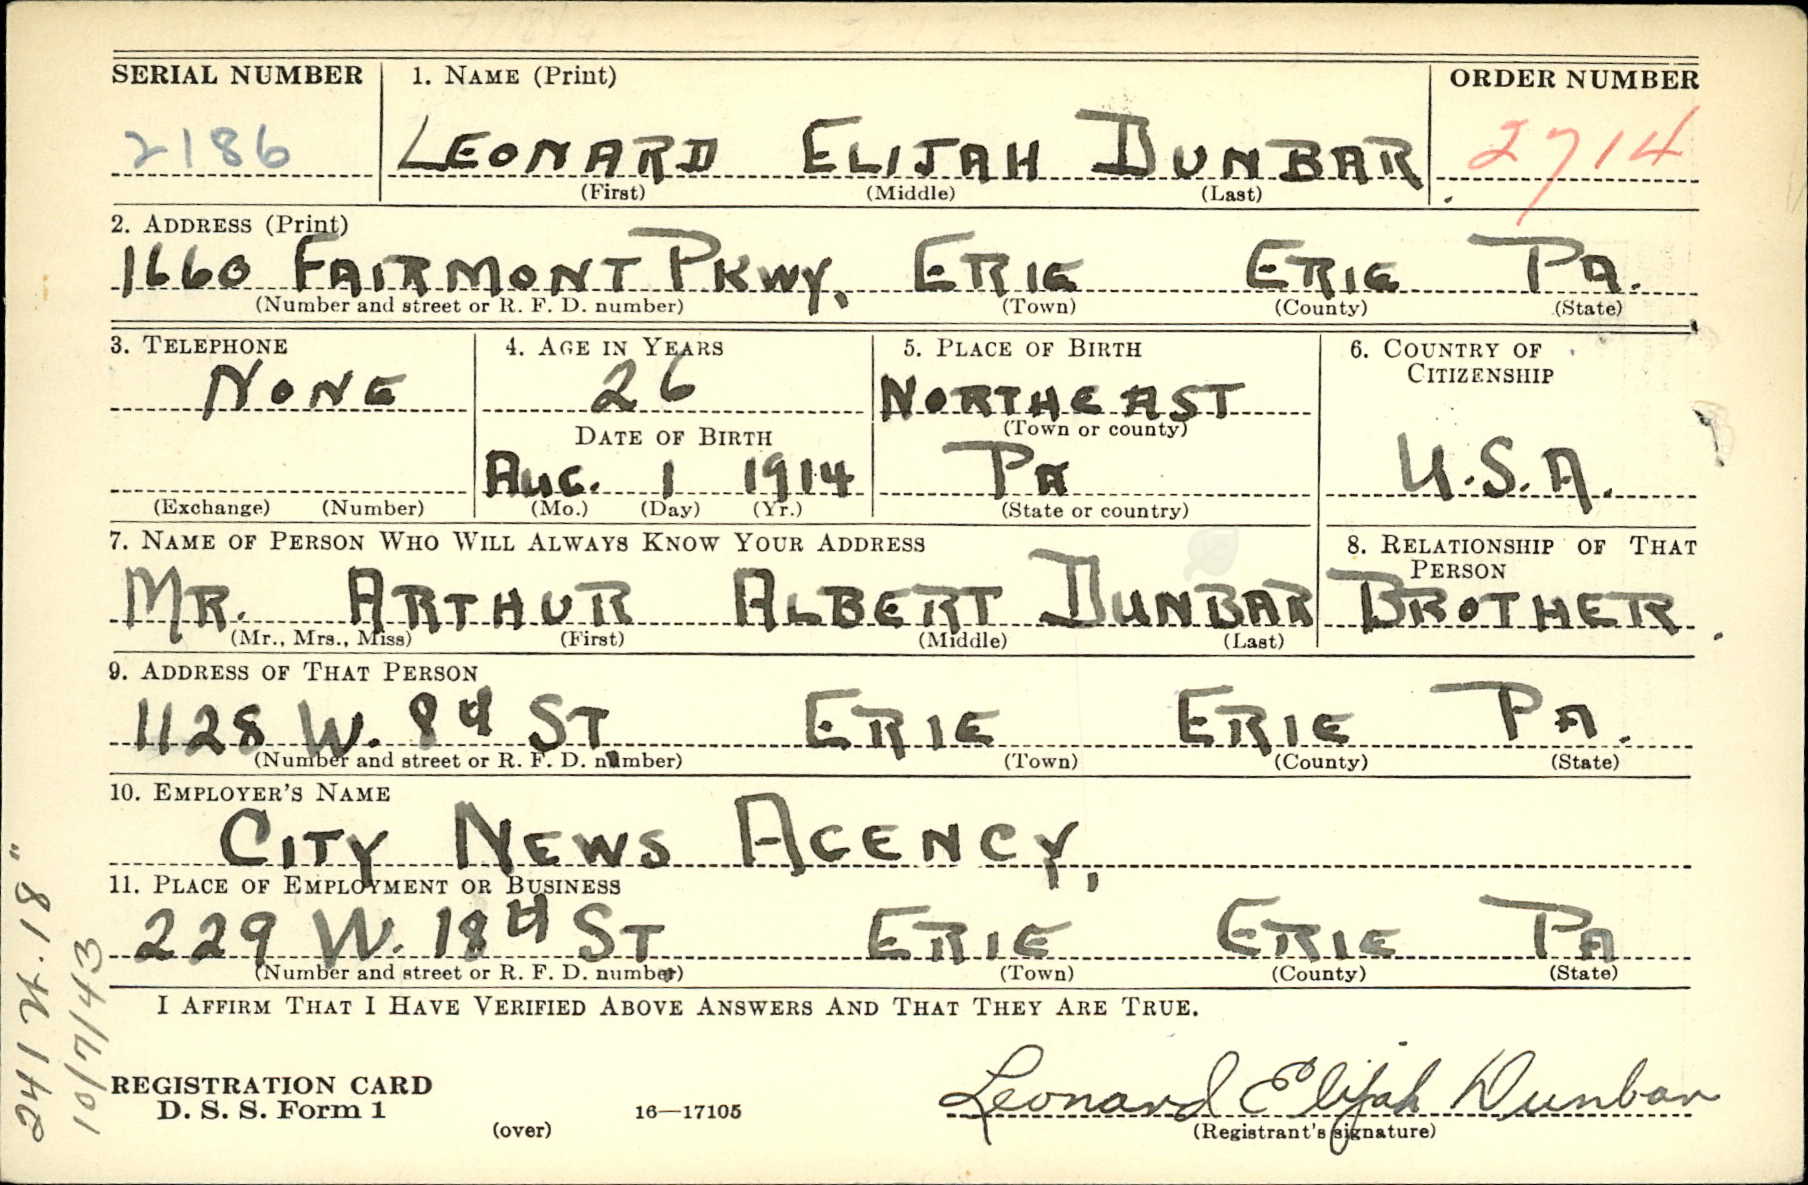 SERIAL NUMBER 1. NAME (Print) ORDER NUMBER
2186 LEONARD ELIJAH DUNBAR 2714
(First) (Middle) (Last)
2. ADDRESS (Print)
1660 FAIRMONT PKWY, ERIE ERIE PA.
(Number and street or R. F. D. number) (Town) (County) (State)
3. TELEPHONE 4. AGE IN YEARS 5. PLACE OF BIRTH 6. COUNTRY OF
CITIZENSHIP
NONE 26 NORTHEAST
(Town or county)
DATE OF BIRTH
AUG. 1 1914 PA U.S.A.
(Exchange) (Number) (Mo.) (Day) (Yr.) (State or country)
7. NAME OF PERSON WHO WILL ALWAYS KNOW YOUR ADDRESS 8. RELATIONSHIP OF THAT
PERSON
MR. ARTHUR ALBERT DUNBAR BROTHER
(Mr., Mrs., Miss) (First) (Middle) (Last)
9. ADDRESS OF THAT PERSON
1128 W. 8TH ST. ERIE ERIE PA.
(Number and street or R. F. D. number) (Town) (County) (State)
10. EMPLOYER'S NAME
CITY NEWS AGENCY,
11. PLACE OF EMPLOYMENT OR BUSINESS
229 W. 18TH ST ERIE ERIE PA
(Number and street or R. F. D. number) (Town) (County) (State)
I AFFIRM THAT I HAVE VERIFIED ABOVE ANSWERS AND THAT THEY ARE TRUE.
REGISTRATION CARD
D. S. S. Form 1 16—17105 Leonard Elijah Dunbar
(over) (Registrant's signature)
241 W. 18"
10/7/43